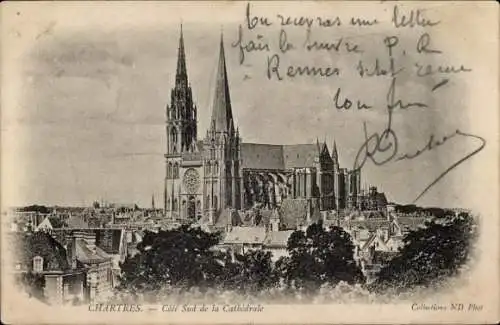 Tu recevras une lettre
fais la suivre P. R.
Rennes sitôt recue
ton
CHARTRES. — Côté Sud de la Cathédrale
Collections ND